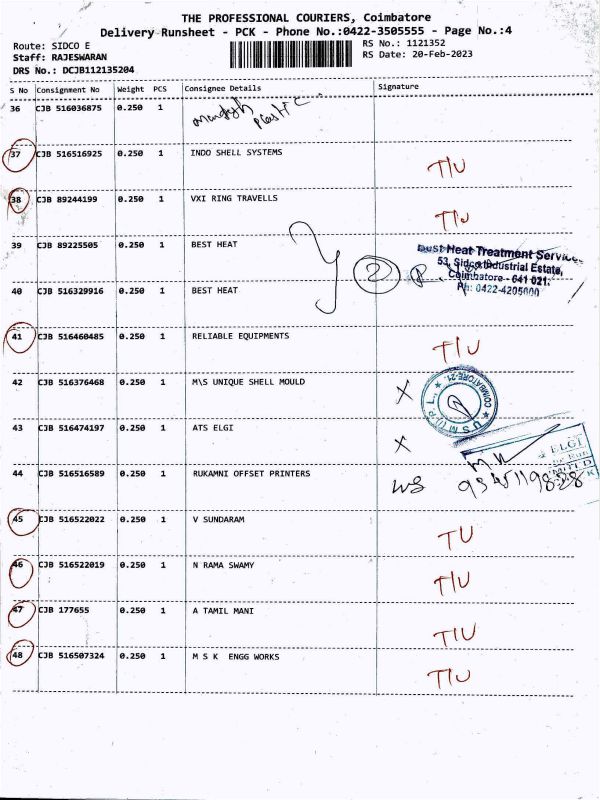 THE PROFESSIONAL COURIERS, Coimbatore
Delivery Runsheet - PCK - Phone No.:0422-3505555 - Page No.:4
Route: SIDCO E
RS No.: 1121352
Staff: RAJESWARAN
RS Date: 20-Feb-2023
DRS No.: DCJB112135204
S No Consignment No Weight PCS Consignee Details Signature
36 CJB 516036875 0.250 1
37 CJB 516516925 0.250 1 INDO SHELL SYSTEMS
T/U
38 CJB 89244199 0.250 1 VXI RING TRAVELLS
T/U
39 CJB 89225505 0.250 1 BEST HEAT
2
Heat Treatment
53, Sidco Industrial Estate,
Coimbatore - 641 021.
Ph: 0422-4205000
40 CJB 516329916 0.250 1 BEST HEAT
41 CJB 516460485 0.250 1 RELIABLE EQUIPMENTS
T/U
42 CJB 516376468 0.250 1 M\S UNIQUE SHELL MOULD
X
COIMBATORE-21.
43 CJB 516474197 0.250 1 ATS ELGI
X
ELGI
44 CJB 516516589 0.250 1 RUKAMNI OFFSET PRINTERS
45 CJB 516522022 0.250 1 V SUNDARAM
TU
46 CJB 516522019 0.250 1 N RAMA SWAMY
T/U
47 CJB 177655 0.250 1 A TAMIL MANI
T/U
48 CJB 516507324 0.250 1 M S K ENGG WORKS
T/U